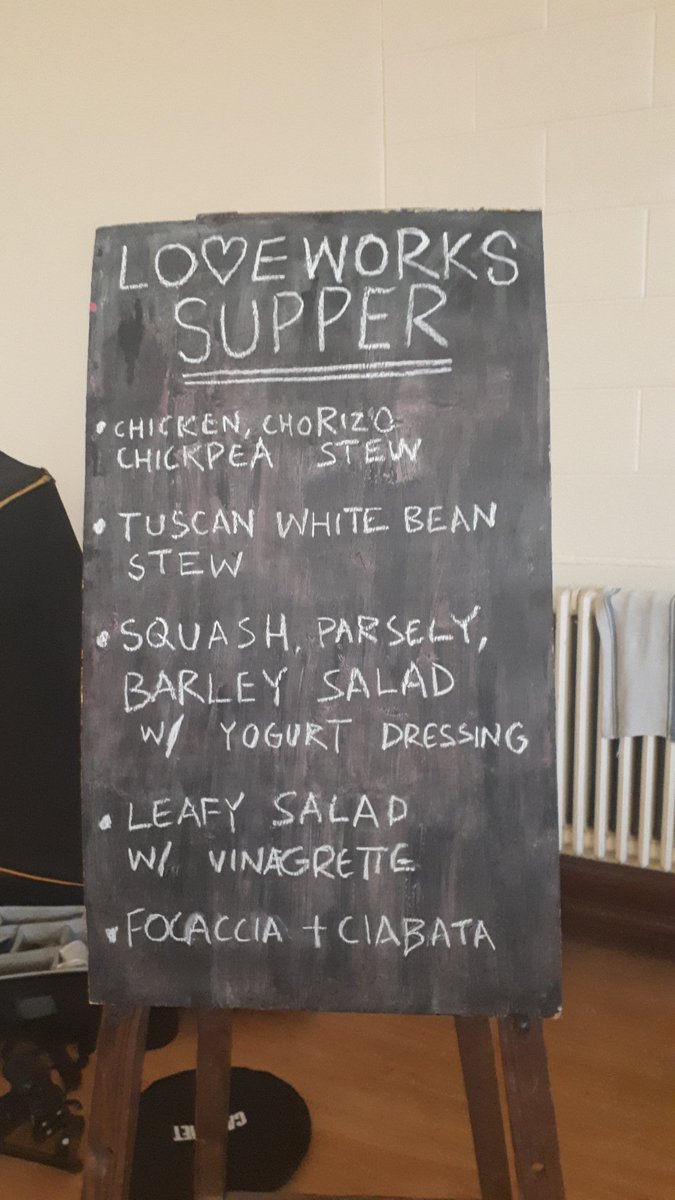 LO♡EWORKS
SUPPER
• CHICKEN, CHORIZO
CHICKPEA STEW
• TUSCAN WHITE BEAN
STEW
• SQUASH, PARSELY,
BARLEY SALAD
W/ YOGURT DRESSING
• LEAFY SALAD
W/ VINAGRETTE
• FOCACCIA + CIABATA